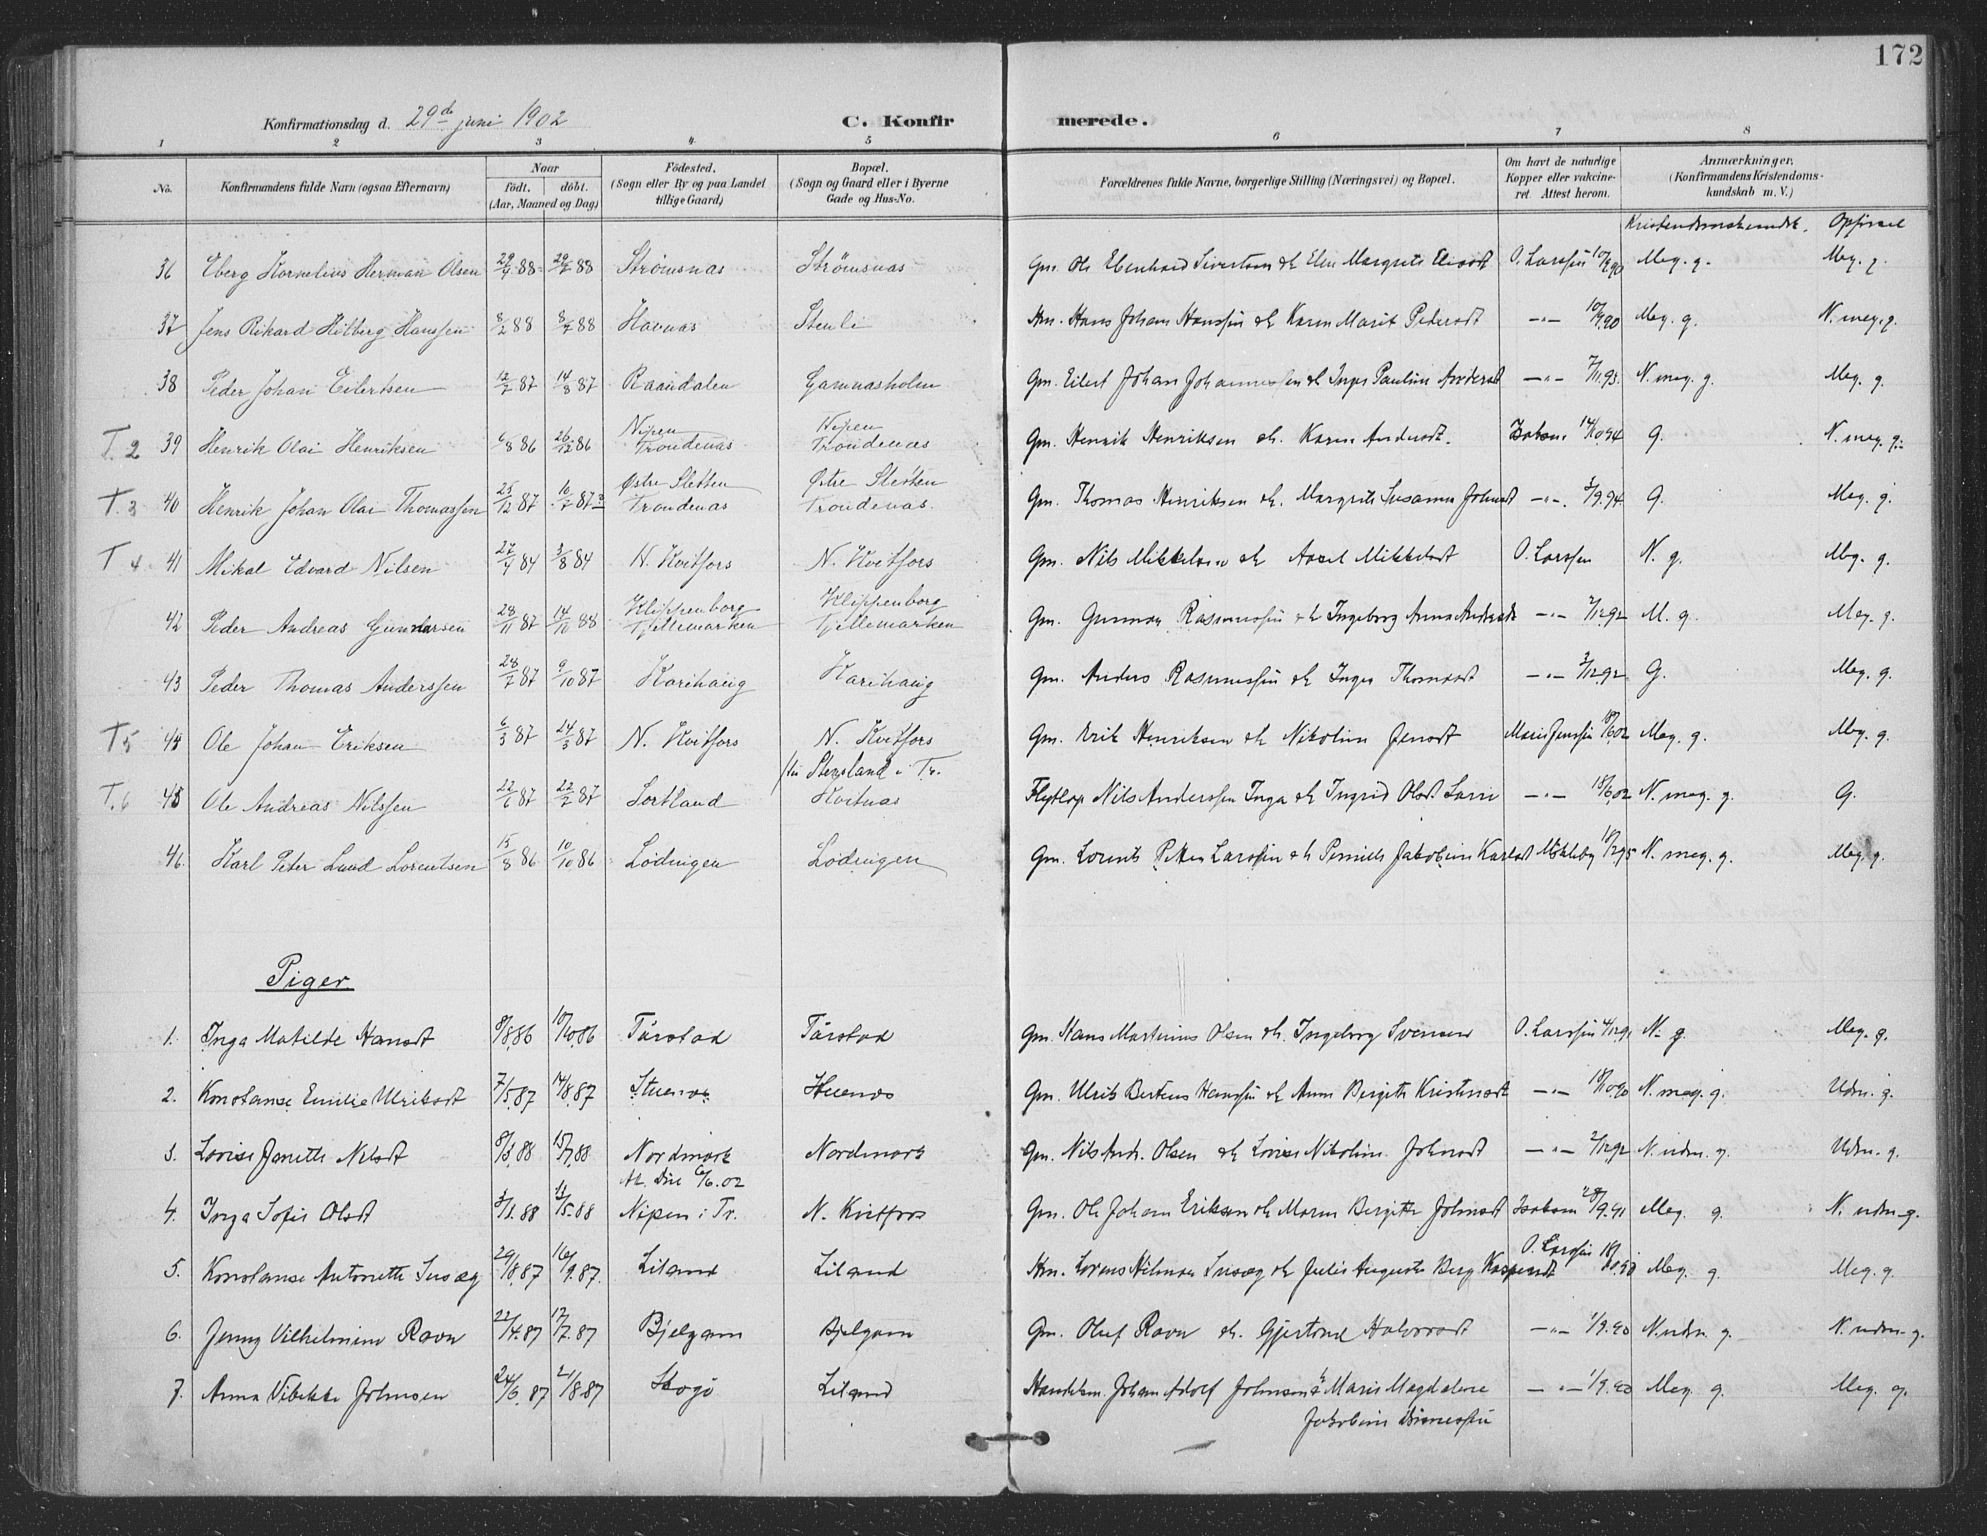 172
Konfirmationsdag d. 29de juni 1902 C. Konfirmerede.
1 2 3 4 5 6 7 8
No. Konfirmandens fulde Navn (ogsaa Efternavn) Naar født. døbt. (Aar, Maaned og Dag) Fødested. (Sogn eller By og paa Landet tillige Gaard) Bopæl. (Sogn og Gaard eller i Byerne Gade og Hus-No. Forældrenes fulde Navne, borgerlige Stilling (Næringsvei) og Bopæl. Om havt de naturlige Kopper eller vakcineret. Attest herom. Anmærkninger. (Konfirmandens Kristendomskundskab m. V.)
Kristendomskundsk. Opførsel
36 Eberg Kornelius Herman Olsen 88 88 Strømsnas Strømsnas Gm. Ole Ebenhard Sivertsen & Elen Margrete O. Larssen Meg. g. Meg. g.
37 Jens Rikard Hilberg Hanssen 8/2 88 8/4 88 Havnas Stenli Hans Johan Hanssen & Karen Marit Pedersdt —"— 10/9.90 Meg. g. N. meg. g.
38 Peder Johan Eilertsen 12/2 87 14/8 87 Raandalen Gamnasholm Gm. Eilert Johan Johannessen & Inger Pauline Andersdt —"— 7/11.93. N. meg. g. Meg. g.
T. 2 39 Henrik Olai Henriksen 6/8 86 26/12 86 Nipen Trondenas Nipen Trondenas Gm. Henrik Henriksen & Karen Andersdt. 14/10.94 g. N. meg. g.
T. 3 40 Henrik Johan Olai Thomassen 25/12 87 87 Østre Sletten Trondenas Østre Sletten Trondenas. Gm. Thomas Henriksen & Margrete Susanna Johnsdt —"— 9.94. g. Meg. g.
T 4 41 Mikal Edvard Nilsen 27/4 84 3/8 84 N. Kvitfors N. Kvitfors Gm. Nils Mikkelsen & Mikkelsdt O. Larssen N. g. Meg. g.
42 Peder Andreas Gunnarsen 28/11 87 14/10 88 Klippenborg Tjellemarken Klippenborg Tjellemarken Gm. Gunnar Rasmussen & Ingeborg Anna Andersdt —"— 2/12.92 M. g. Meg. g.
43 Peder Thomas Anderssen 28/7 87 9/10 87 Karihaug Karihaug Gm. Anders Rasmussen & Inger Thomasdt —"— 3/12.92 G. Meg. g.
T 5 44 Ole Johan Eriksen 6/3 87 24/3 87 N. Kvitfors N. Kvitfors Gm. Erik Henriksen & Nikoline Jensdt Marie Jenssen 18/6.02 Meg. g. Meg. g.
T. 6 45 Ole Andreas Nilssen 22/6 87 22/2 87 Sortland Stensland i Tr. Kvitnas Nils Anderssen Inga & Ingrid Olsdt. —"— 18/6.02 N. meg. g. G.
46. Karl Peter Lund Lorentsen 15/8 86 10/10 86 Lødingen Lødingen Gm. Lorents Petter Larssen & Pernille Jakobine Karlsdt Økleby N. meg. g. Meg. g.
Piger
1. Inga Matilde Hansdt 8/8.86 10/10.86 Tårstad Tårstad Gm. Hans Martinus Olsen & Ingeborg O. Larssen N. g. Meg. g.
2. Konstanse Emilie Ulriksdt 7/5.87 14/8.87 Gm. Ulrik Bertens Hanssen & Anna Bergitte Kristensdt —"— 18/10.90 N. meg. g. Udm. g.
3. Lovise Janette Nilsdt 8/3.88 15/7.88 Nordmark Nordmark Gm. Nils Andr. Olsen & Lovise Nikoline Johnsdt —"— 2/12.92 N. udm. g. Udm. g.
6/6.02
4. Inga Sofie Olsdt 88 5.88 Nipen i Tr. N. Kvitfors Gm. Ole Johan Eriksen & Maren Bergitte Johnsdt 28/9.91 Meg. g. N. udm. g.
5. Konstanse Antonette 29/8.87 16/9.87. Liland Liland Lorens Hilmar & Julie Auguste Berg Kaspersdt O. Larssen Meg. g. Meg. g.
6. Jenny Vilhelmine Ravn 22/4.87 17/7.87 Bjelgam Bjelgam Gm. Oluf Ravn & Gjertrud Halvorsdt —"— 1/9.90 N. udm. g. N. udm. g.
7. Anna Vibekke Johnsen 24/6.87 21/8.87 Skogø Liland Handelsm. Johan Adolf Johnsen & Marie Magdalene —"— 1/9.90 Meg. g. Meg. g.
Jakobine